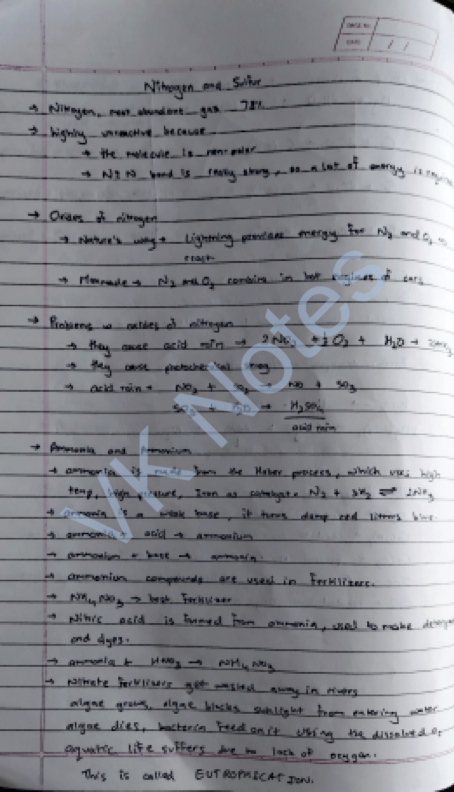 PAGE No.
DATE / /
Nitrogen and Sulfur
→ Nitrogen, most abundant gas 78%
→ highly unreactive because
→ the molecule is non-polar
→ N≡N bond is really strong, so a lot of energy is
→ Oxides of nitrogen
→ Nature's way → Lightning provides energy for N2 and O2 to
react.
→ Manmade → N2 and O2 combine in hot engines of cars
→ Problems w oxides of nitrogen
→ they cause acid rain → 2NO2 + ½O2 + H2O →
→ they cause photochemical smog
→ acid rain → NO2 + SO2 → NO + SO3
SO3 + H2O → H2SO4
acid rain
→ Ammonia and Ammonium
→ ammonia is made from the Haber process, which uses high
temp, high pressure, Iron as catalyst. N2 + 3H2 ⇌ 2NH3
→ ammonia is a weak base, it turns damp red litmus blue.
→ ammonia + acid → ammonium
→ ammonium + base → ammonia.
→ ammonium compounds are used in fertilizers.
→ NH4NO3 → best fertilizer
→ Nitric acid is formed from ammonia, used to make
and dyes.
→ ammonia + HNO3 → NH4NO3
→ Nitrate fertilizers get washed away in rivers
algae grows, algae blocks sunlight from entering water
algae dies, bacteria feed on it using the dissolved O2
aquatic life suffers due to lack of oxygen.
This is called EUTROPHICATION.
VK Notes